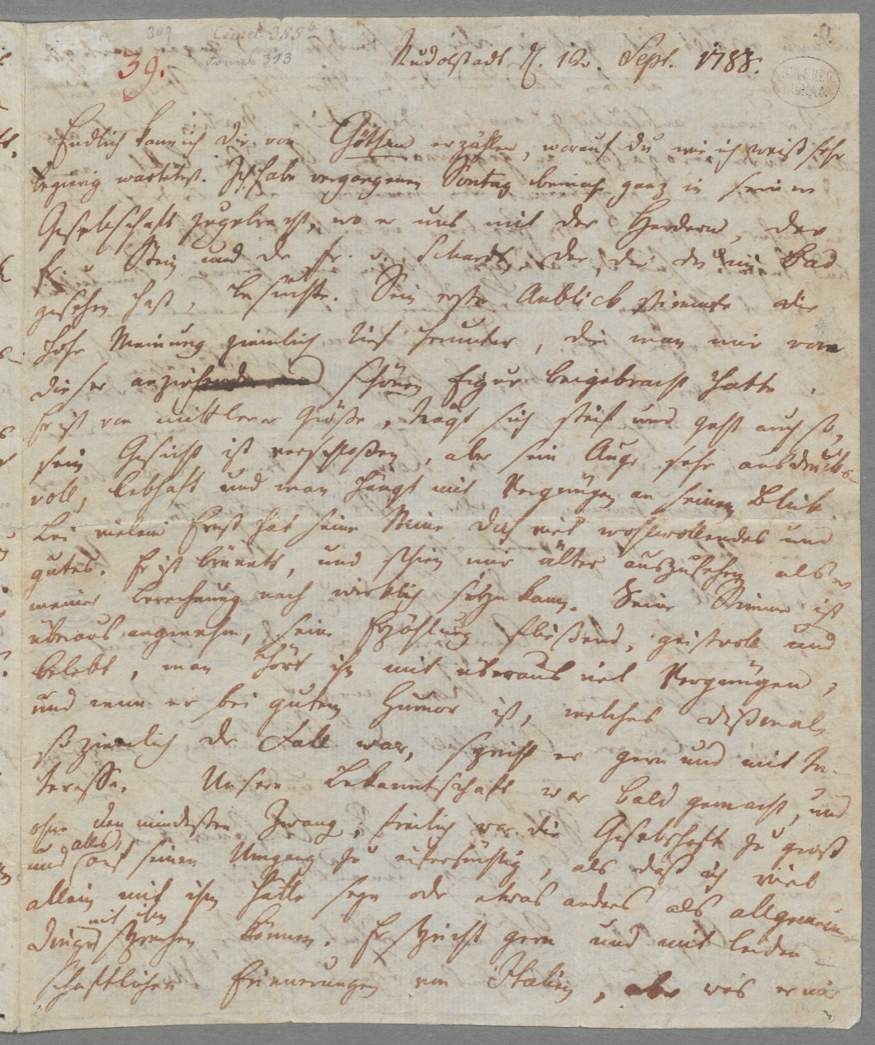 39.
Rudolstadt d. 12. Sept. 1788.
Endlich kann ich Dir von Göthen erzählen, worauf Du wie ich weiß sehr
begierig wartetest. Ich habe vergangenen Sontag beinah ganz in seiner
Gesellschaft zugebracht, wo er uns mit der Herdern, der
Fr. v Stein und der Fr. v. Schardt, der, die Du im Bad
gesehen hast, besuchte. Sein erster Anblick stimmte die
hohe Meinung ziemlich tief herunter, die man mir von
dieser anziehenden schönen Figur beigebracht hatte.
Er ist von mittlerer Größe, trägt sich steif und geht auch so,
sein Gesicht ist verschloßen, aber sein Auge sehr ausdrucks
voll, lebhaft und man hängt mit Vergnügen an seinem Blick.
Bei vielem Ernst hat seine Miene doch viel wohlwollendes und
gutes. Er ist brünett, und schien mir älter auszusehen als er
meiner Berechnung nach wirklich seyn kann. Seine Stimme ist
überaus angenehm, seine Erzählung fließend, geistvoll und
belebt, man hört ihn mit überaus viel Vergnügen,
und wenn er bei gutem Humor ist, welches dißmal
so ziemlich der Fall war, spricht er gern und mit In-
teresse. Unsere Bekanntschaft war bald gemacht, und
ohne den mindesten Zwang, freilich war die Gesellschaft zu groß
und alles auf seinen Umgang zu eifersüchtig, als daß ich viel
allein mit ihm hätte seyn oder etwas anders als allgemeine
Dinge mit ihm sprechen können. Er spricht gern und mit leiden-
schaftlichen Erinnerungen von Italien, aber was er mir